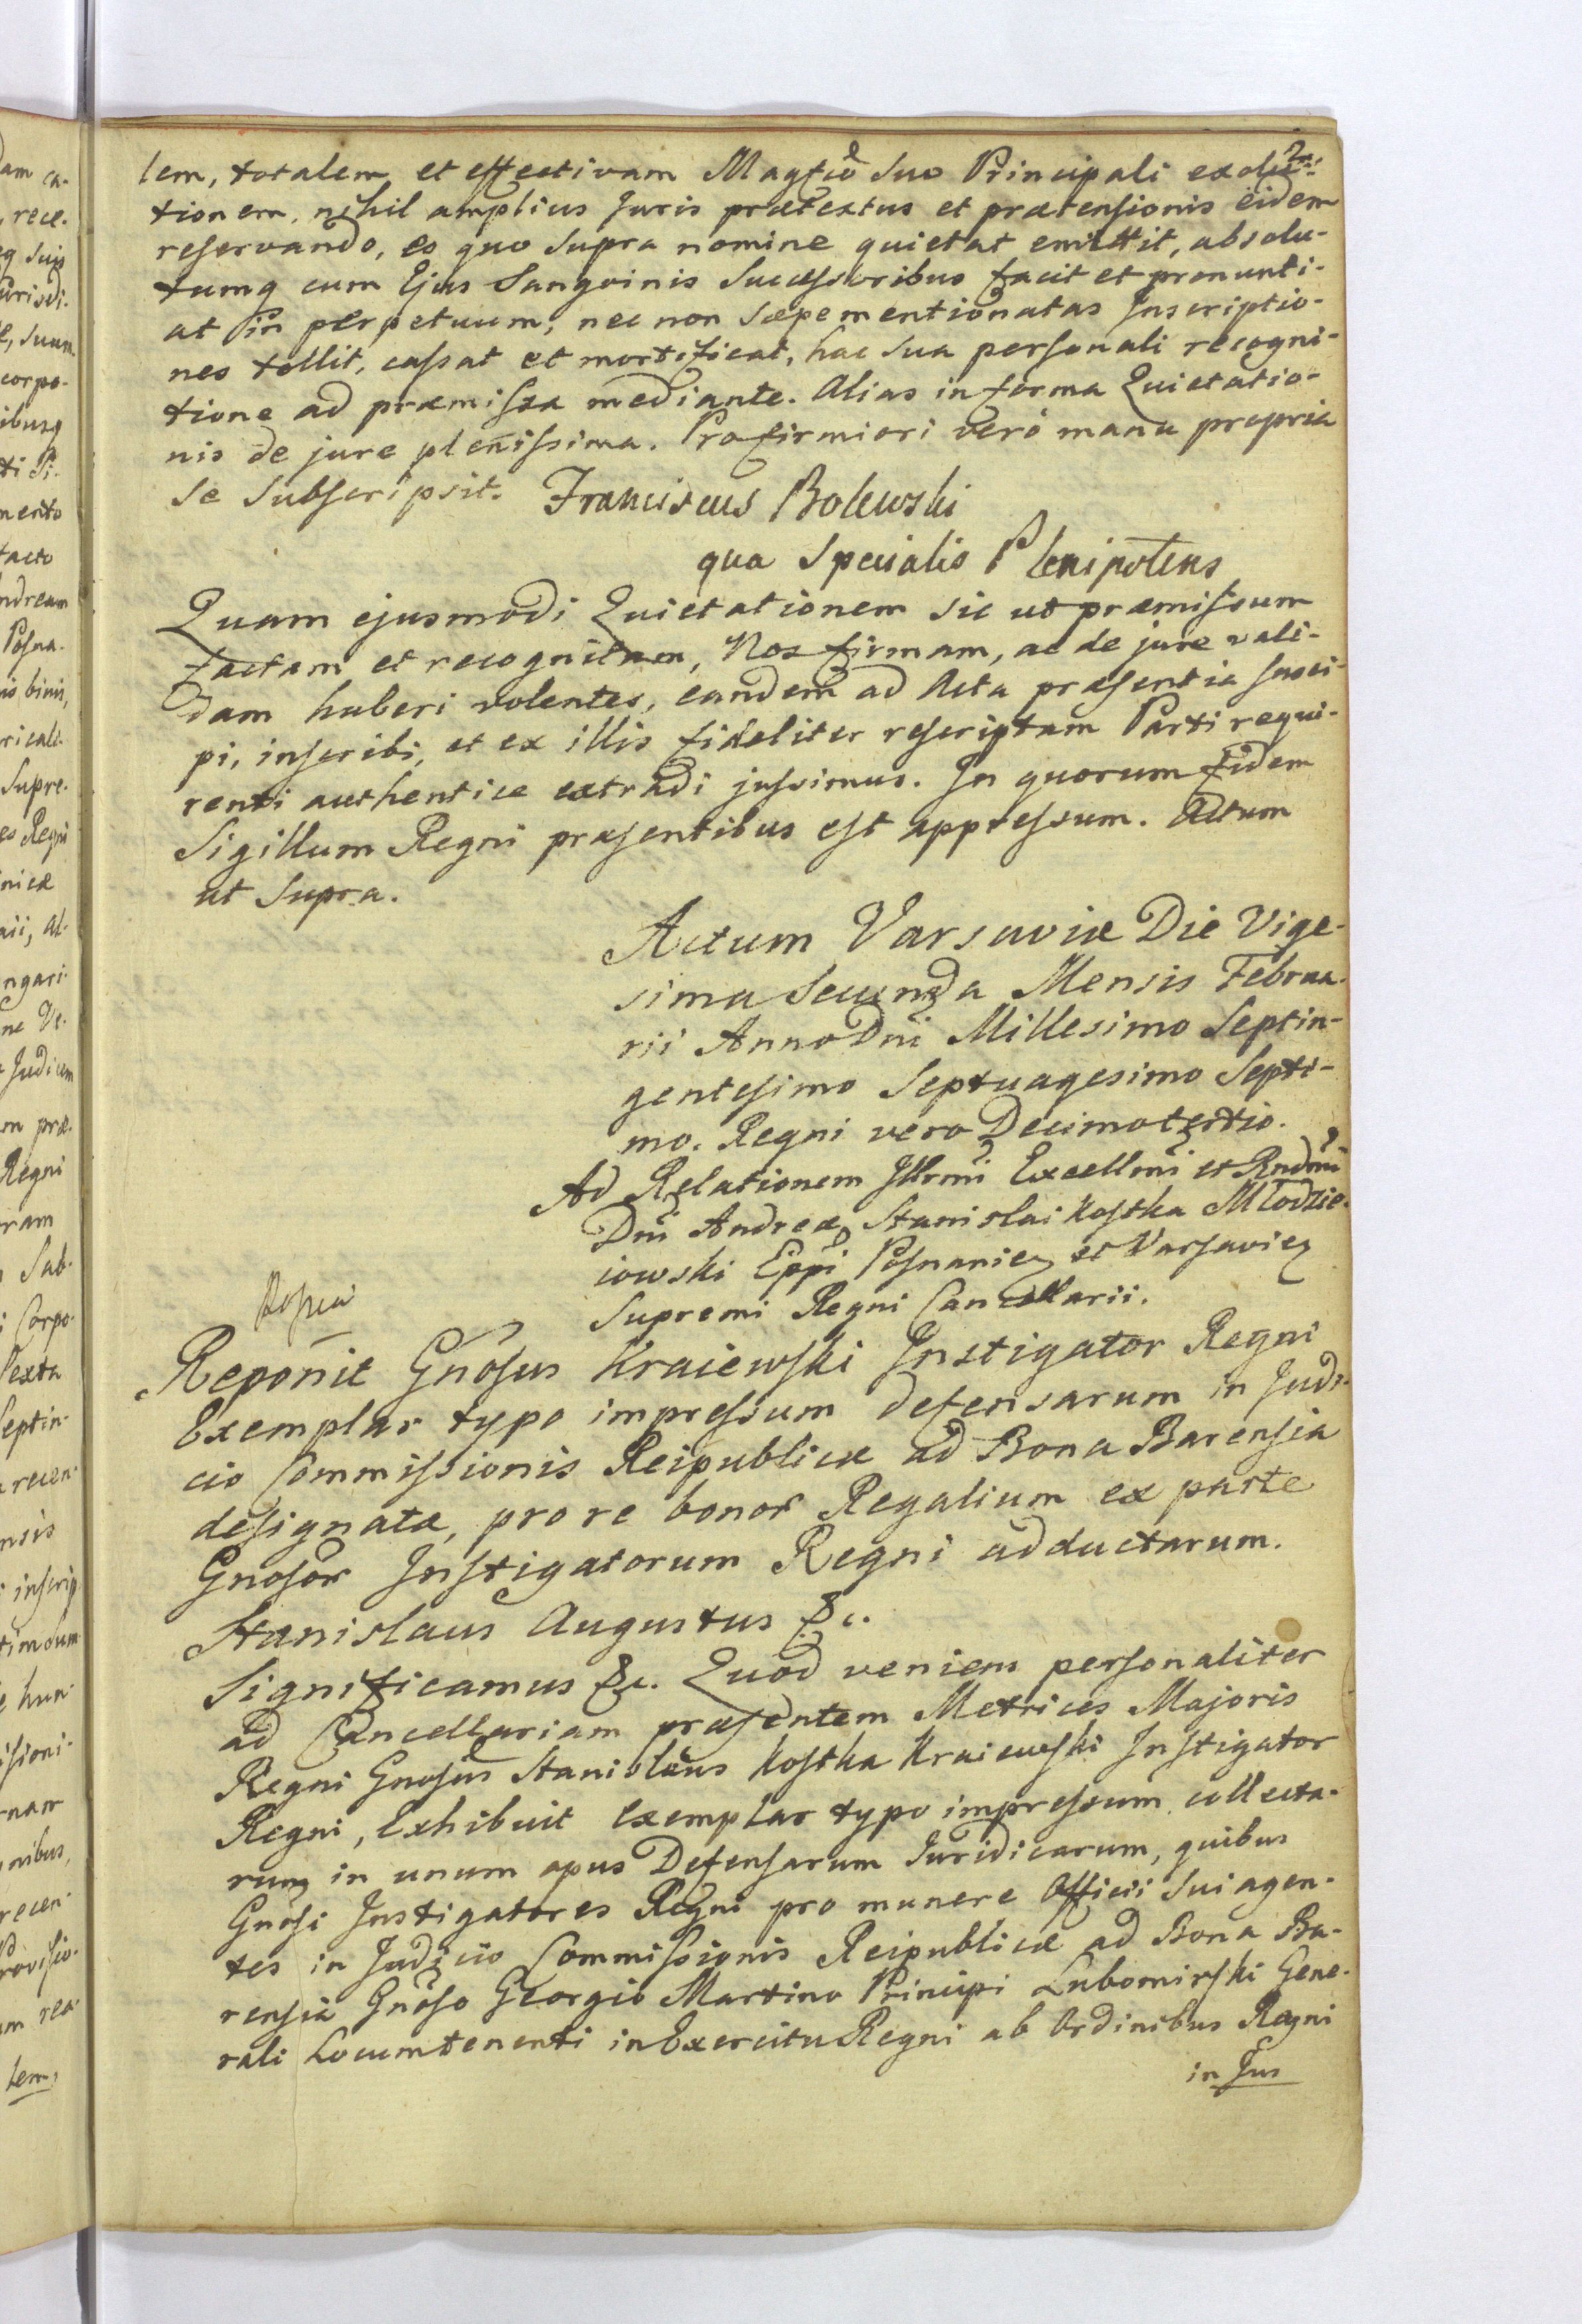 2.
lem, totalem et effectivam Magfico suo Principali exolu-
tionem, nihil amplius Juris prætextus et prætensionis eidem
reservando, eo quo supra nomine quietat emittit, absolu-
tumq cum Ejus Sangvinis Successoribus facit et pronunti-
at in perpetuum, nec non sæpementionatas Inscriptio-
nes tollit, cassat et mortificat, hac sua personali recogni-
tione ad præmissa mediante. Alias in forma Quietatio-
nis de jure plenissima. Pro firmiori vero manu propria
se subscripsit. Franciscus Bolewski
qua specialis Plenipotens
Quam ejusmodi Quietationem sic ut præmissum
factam et recognitam, Nos firmam, ac de jure vali-
dam haberi volentes, eandem ad Acta præsentia susci-
pi, inscribi, et ex illis fideliter rescriptam Parti requi-
renti authentice extradi jussimus. In quorum fidem
Sigillum Regni præsentibus est appressum. Actum
ut supra.
Actum Varsaviæ Die Vige-
sima Secunda Mensis Februa-
rii Anno Dni Millesimo Septin-
gentesimo Septuagesimo Septi-
mo. Regni vero Decimotertio.
Ad Relationem Illrmi Excellmi et Rndmi
Dni Andreæ Stanislai Kostka Młodzie-
iowski Eppi Posnanien et Varsavien
Supremi Regni Cancellarii.
Reponit Gnosus Kraiewski Instigator Regni
Exemplar typo impressum defensarum in Judi-
cio Commissionis Reipublicæ ad Bona Barensia
designatæ, pro re bonor Regalium ex parte
Gnosor Instigatorum Regni adductarum.
Stanislaus Augustus &c.
Significamus &c. Quod veniens personaliter
ad Cancellariam præsentem Metrices Majoris
Regni Gnosus Stanislaus Kostka Kraiewski Instigator
Regni, Exhibuit Exemplar typo impressum collecta-
rum in unum opus Defensarum Juridicarum, quibus
Gnosi Instigatores Regni pro munere Officii sui agen-
tes in Judicio Commissionis Reipublicæ ad Bona Ba-
rensia Gnoso Georgio Martino Principi Lubomirski Gene-
rali Locumtenenti in Exercitu Regni ab Ordinibus Regni
in Jus